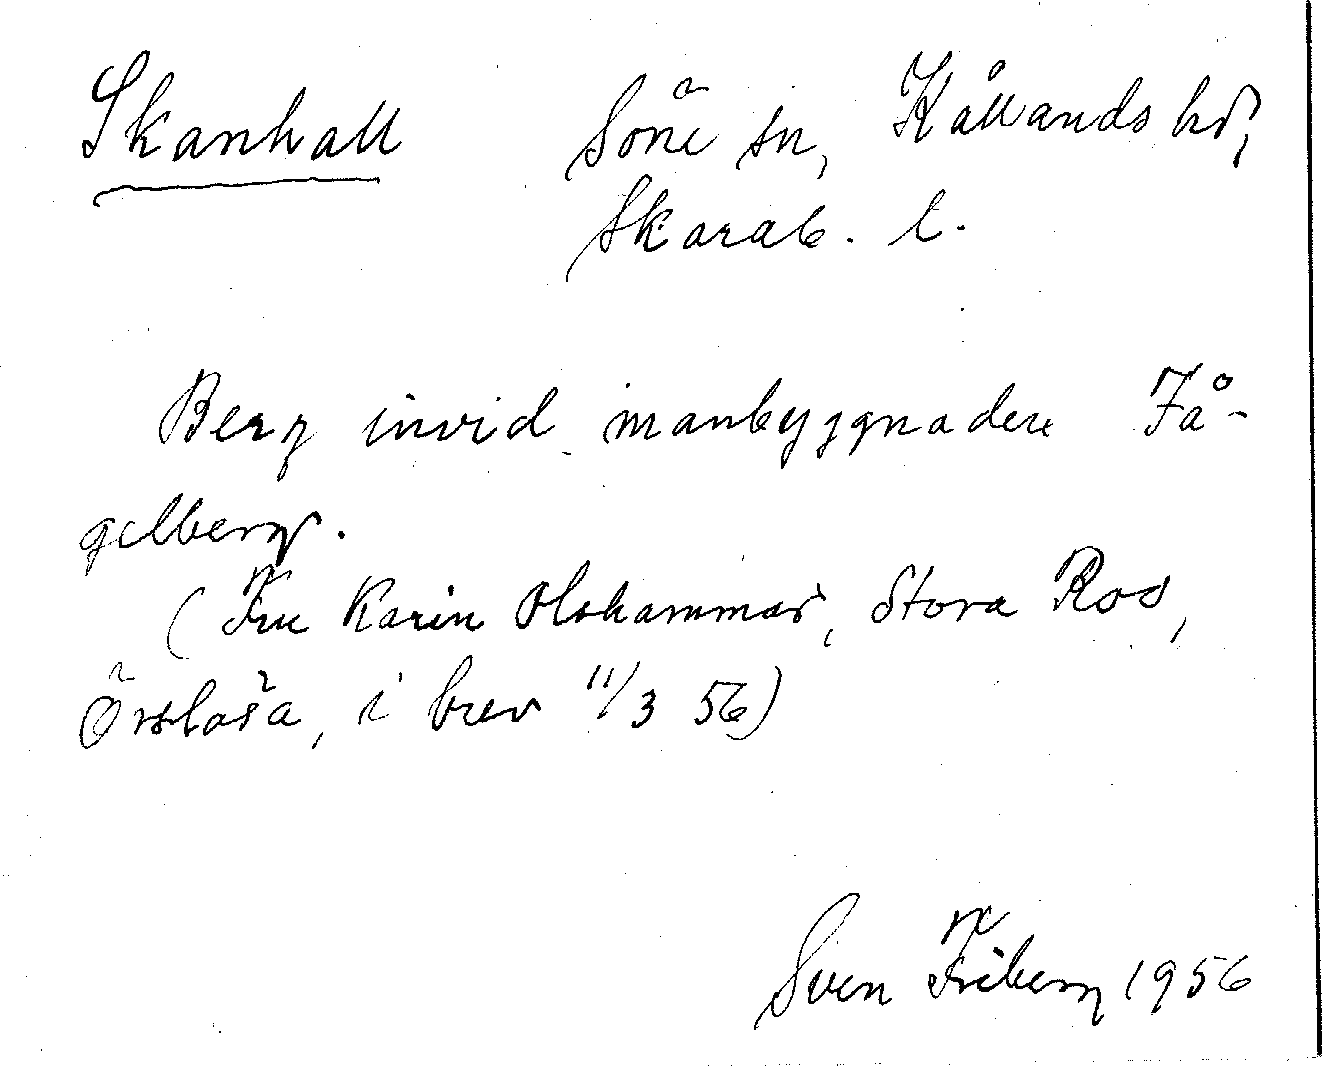 Skanhall Söne sn, Kållands hd,
Skarab. l.
Berg invid manbyggnaden Få-
gelberg.
(Fru Karin Olshammar, Stora Ros,
Örslösa, i brev 11/3 56)
Sven Friberg 1956